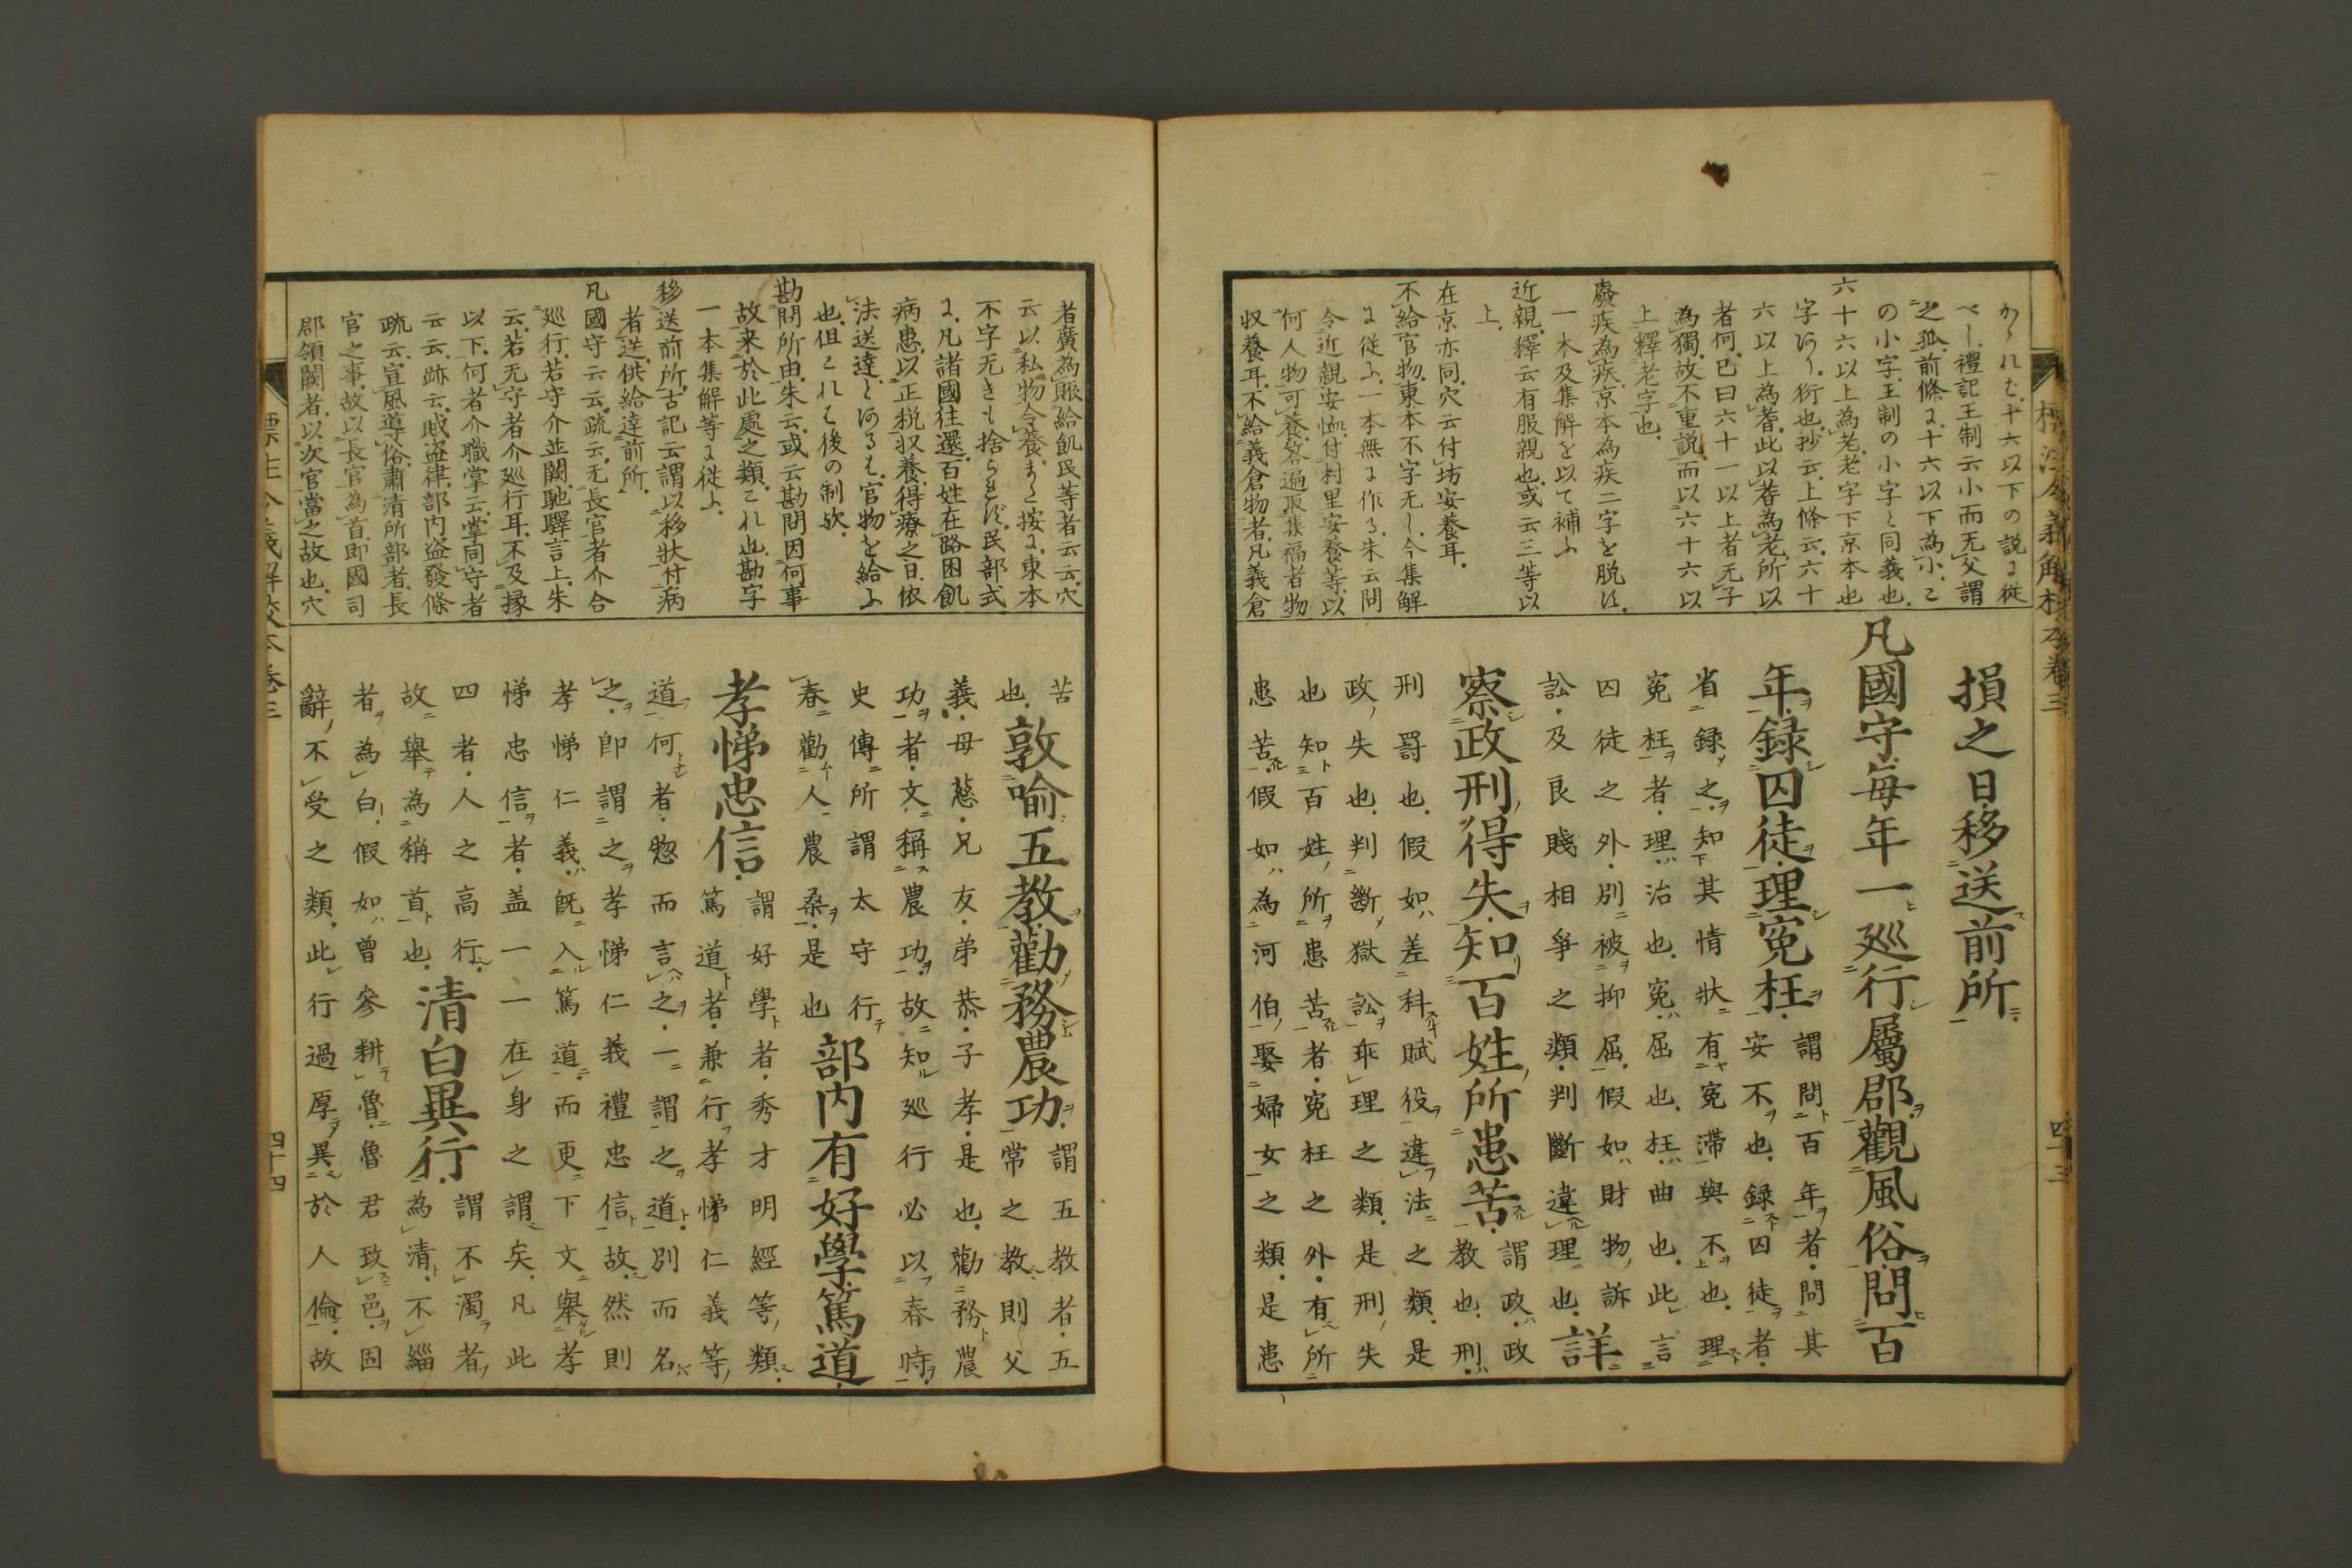 かゝれむ十六以下の説に従
べし禮記王制云小而无父謂
之孤前條に十六以下為小と
の小字王制の小字と同義也
六十六以上為老老字下京本也
字あり衍也抄云上條云六十
六以上為耆此以耆為老所以
者何巳曰六十一以上者无子
為獨故不重説而以六十六以
上釋老字也
廢疾為疾京本為疾二字を脱す
一本及集解を以て補ふ
近親釋云有服親也或云三等以
上
在京亦同穴云付坊安養耳
不給官物東本不字无し今集解
に従ふ一本無に作る朱云問
令近親安恤付村里安養等以
何人物可養答遍取集福者物
収養耳不給義倉物者凡義倉
損之日移送前所
凡國守毎年一巡行屬郡觀風俗問百
年錄囚徒理寃枉謂問百年者問其
安不也錄囚徒者
省錄之知其情狀有寃滯與不也理
寃枉者理治也寃屈也枉曲也此言
囚徒之外別被抑屈假如財物訴
訟及良賤相爭之類判斷違理也詳
察政刑得失知百姓所患苦謂政政
教也刑
刑罰也假如差科賦役違法之類是
政失也判斷獄訟乖理之類是刑失
也知百姓所患苦者寃枉之外有所
患苦假如為河伯娶婦女之類是患
四十三
者廣為賑給飢民等者云云穴
云以私物令養また按に東本
不字无きも捨らさす民部式
に凡諸國往還百姓在路困飢
病患以正税収養得療之日依
法送達とあるも官物を給ふ
也但これは後の制歟
勘問所由朱云或云勘問因何事
故来於此處之類これ也勘字
一本集解等に従ふ
移送前所古記云謂以移狀付病
者送供給達前所
凡國守云云疏云无長官者介合
巡行若守介並闕馳驛言上朱
云若无守者介巡行耳不及掾
以下何者介職掌云掌同守者
云云跡云賊盗律部内盗發條
疏云宣風導俗肅清所部者長
官之事故以長官為首即國司
郡領闕者以次官當之故也穴
苦
也敦喻五教勸務農功謂五教者五
常之教則父
義母慈兄友弟恭子孝是也勸務農
功者文稱農功故知巡行必以春時
史傳所謂太守行
春勸人農桑是也部内有好學篤道
孝悌忠信謂好學者秀才明經等類
篤道者兼行孝悌仁義等
道何者惣而言之一謂之道別而名
之卽謂之孝悌仁義禮忠信故然則
孝悌仁義既入篤道而更下文擧孝
悌忠信者盖一一在身之謂矣凡此
四者人之高行
故擧為稱首也清白異行謂不濁者
為清不緇
者為白假如曾參耕魯魯君致邑固
辭不受之類此行過厚異於人倫故
四十四